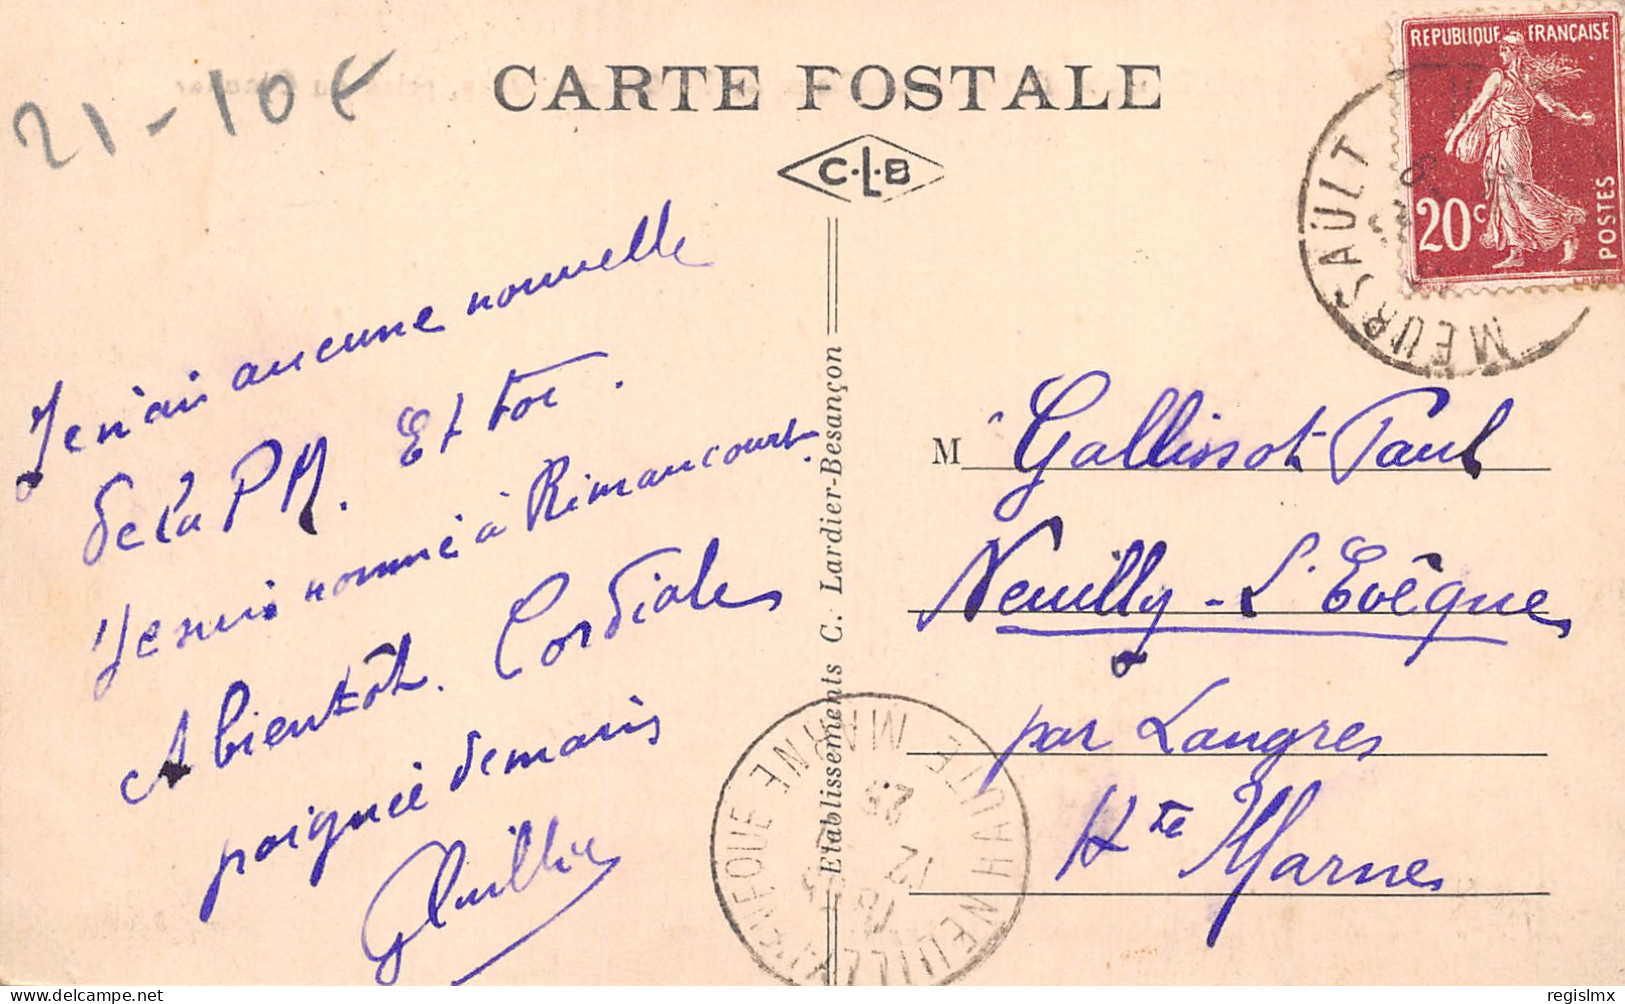 21-10€
CARTE POSTALE
C.L.B
REPUBLIQUE FRANÇAISE
20c
POSTES
MEURSAULT
Je n'ai aucune nouvelle
de la PM. Et toi.
Je suis nommé à Rimaucourt.
A bientôt. Cordiales
poignée de mains
Etablissements C. Lardier-Besançon
M Gallissot Paul
Neuilly-L'Evêque
par Langres
Hte Marne
NEUILLY-L'EVEQUE HAUTE MARNE
18
12
25
regislmx
delcampe.net